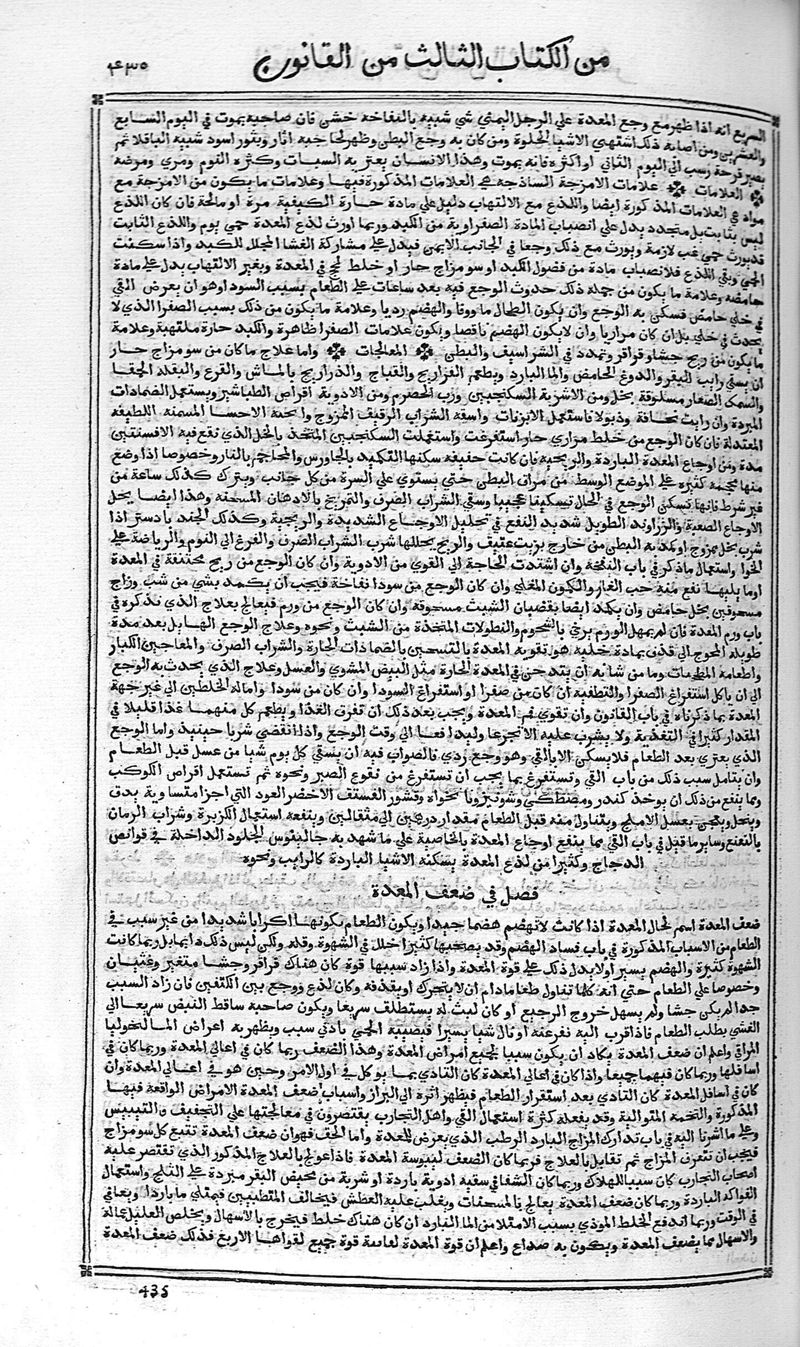 ٤٣٥
من الكتاب الثالث من القانون
السريع انه اذا ظهر مع وجع المعدة علي الرجل اليمني شي شبيه بالتفاحة خشن فان صاحبه يموت في اليوم السابع
والعشرين ومن اصابه ذلك اشتهي الاشيا الحلوة ومن كان به وجع البطن وظهر لحاجبه اثار وبثور اسود شبيه الباقلا ثم
يصير قرحة الي اليوم الثاني او اكثر فانه يموت وهذا الانسان يعتريه السبات وكثرة النوم
العلامات علامات الامزجة الساذجة هي العلامات المذكورة فيها وعلامات ما يكون من الامزجة مع
مواد هي العلامات المذكورة ايضا واللذع مع الالتهاب دليل علي مادة حارة الكيفية مرة او مالحة فان كان اللذع
ليس بثابت بل متجدد يدل علي انصباب المادة الصفراوية من الكبد وربما اورث لذع المعدة حمي يوم واللذع الثابت
قد يورث حمي غب لازمة ويورث مع ذلك وجعا في الجانب الايمن فيدل علي مشاركة الغشا المجلل للكبد واذا سكنت
الحمي وبقي اللذع فلانصباب مادة من فضول الكبد او سو مزاج حار او خلط لحج في المعدة وبغير الالتهاب يدل علي مادة
حامضة وعلامة ما يكون من جملة ذلك حدوث الوجع فيه بعد ساعات علي الطعام بسبب السودا وهو ان يعرض القي
حامض فسكن به الوجع وان يكون الطحال ماووفا والهضم رديا وعلامة ما يكون من ذلك بسبب الصفرا الذي لا
يحدث في بل ان كان مراريا وان لا يكون الهضم ناقصا ويكون علامات الصفرا ظاهرة والكبد حارة ملتهبة وعلامة
ما يكون من ريح جشا وقراقر وتمدد في الشراسيف والبطن المعالجات واما علاج ما كان من سو مزاج حار
ان يسقي رايب البقر والدوغ الحامض والما البارد ويطعم الفراريج والقباج والدراريج بالماش والقرع والبقلة الحمقا
والسمك الصغار مسلوقة بخل ومن الاشربة السكنجبين ورب الحصرم ومن الادوية اقراص الطباشير ويستعمل الضمادات
المبردة وان رايت نحافة وذبولا فاستعمل الابزنات واسقه الشراب الرقيق الممزوج والحقه الاحسا المسمنة اللطيفة
المعتدلة فان كان الوجع من خلط مراري حار استفرغت واستعملت السكنجبين المتخذ بالخل الذي نقع فيه الافسنتين
مدة ومن اوجاع المعدة الباردة والريحية فان كانت خفيفة سكنها التكميد بالجاورس والمحاجم بالنار وخصوصا اذا وضع
منها محجمة كبيرة علي الموضع الوسط من مراق البطن حتي يستوي علي السرة من كل جانب ويترك كذلك ساعة من
غير شرط فانها تسكن الوجع في الحال تسكينا عجيبا وسقي الشراب الصرف والتمريخ بالادهان المسخنة وهذا ايضا يحل
الاوجاع الصعبة والزراوند الطويل شديد النفع في تحليل الاوجاع الشديدة والريحية وكذلك الجند بادستر اذا
شرب بخل ممزوج او كمد به البطن من خارج بزيت عتيق والريح يحللها شرب الشراب الصرف والفزع الي النوم والرياضة علي
الخوا واستعمال ما ذكر في باب النفخة وان اشتدت الحاجة الي القوي من الادوية وان كان الوجع من ريح محتقنة في المعدة
او ما يليها نفع منه حب الغار والكمون المغلي وان كان الوجع من سودا نفاخة فيجب ان يكمد بشي من شب وزاج
مسحوقين بخل حامض وان يكمد ايضا بقضبان الشبث مسحوقة وان كان الوجع من ورم فيعالج بعلاج الذي نذكره في
باب ورم المعدة فان لم يمهل الورم يرخي بالشحوم والنطولات المتخذة من الشبث ونحوه وعلاج الوجع الهايل بعد مدة
طويلة المحوج الي قذف بمادة خلية هو تقوية المعدة بالتسخين بالضمادات الحارة والشراب الصرف والمعاجين الكبار
واطعامه المطجنات وما من شانه ان يتدخن في المعدة الحارة مثل البيض المشوي والعسل وعلاج الذي يحدث به الوجع
الي ان ياكل استفراغ الصفرا والتطفية ان كان من صفرا او استفراغ السودا وان كان من سودا وامالة الخلطين الي غير جهة
المعدة بما ذكرناه في باب القانون وان تقوي فم المعدة ويجب بعد ذلك ان تفرق الغذا ويطعم كل منهما غذا قليلا في
المقدار كثيرا في التغذية ولا يشرب عليه الا تجرعا وليدافعا الي وقت الوجع واذا انقضي شربا حينيذ واما الوجع
الذي يعتري بعد الطعام فلا يسكن الا بالقي وهو وجع ردي فالصواب فيه ان يسقي كل يوم شيا من عسل قبل الطعام
وان يتامل سبب ذلك من باب القي وتستفرغ بما يجب ان تستفرغ من نقوع الصبر ونحوه ثم تستعمل اقراص الكوكب
ومما ينفع من ذلك ان يوخذ كندر ومصطكي وشونيز ونانخواه وقشور الفستق الاخضر العود الني اجزا متساوية يدق
وينخل ويعجن بعسل الاملج ويتناول منه قبل الطعام مقدار درهمين الي مثقالين وينفعه استعمال الكزبرة وشراب الرمان
بالنعنع وسايرما قيل في باب القي مما ينفع اوجاع المعدة بالخاصية علي ما شهد به جالينوس الجلود الداخلة في قوانص
الدجاج وكثيرا من لذع المعدة يسكنه الاشيا الباردة كالرايب ونحوه
فصل في ضعف المعدة
ضعف المعدة اسم لحال المعدة اذا كانت لا تهضم هضما جيدا ويكون الطعام يكربها اكرابا شديدا من غير سبب في
الطعام من الاسباب المذكورة في باب فساد الهضم وقد يصحبها كثيرا خلل في الشهوة وقلة ولكن ليس ذلك دايما بل ربما كانت
الشهوة كثيرة والهضم يسيرا ولا يدل ذلك علي قوة المعدة واذا زاد سببها قوة كان هناك قراقر وجشا متغير وغثيان
وخصوصا علي الطعام حتي انه كلما تناول طعاما دام ان لا يتحرك او يقذفه وكان لذع ووجع بين الكتفين فان زاد السبب
جدا لم يكن جشا ولم يسهل خروج الرجيع او كان لبث له يستطلق سريعا ويكون صاحبه ساقط النبض سريعا الي
الغشي بطلب الطعام فاذا قرب اليه نفر عنه او نال شيا يسيرا فيصيبه الحمي بادني سبب ويظهر به اعراض المالنخوليا
المراقي واعلم ان ضعف المعدة يكاد ان يكون سببا لجميع امراض المعدة وهذا الضعف ربما كان في اعالي المعدة وربما كان في
اسافلها وربما كان فيهما جميعا واذا كان في اعالي المعدة كان التاذي بما يوكل في اول الامر وحين هو في اعالي المعدة وان
كان في اسافل المعدة كان التاذي بعد استقرار الطعام فيظهر اثره الي البراز واسباب ضعف المعدة الامراض الواقعة فيها
المذكورة والتخمة المتوالية وقد يفعله كثرة استعمال القي واهل التجارب يقتصرون في معالجتها علي التجفيف والتيبيس
وعلي ما اشرنا اليه في باب تدارك المزاج البارد الرطب الذي يعرض للمعدة واما الحق فهو ان ضعف المعدة تتبع كل سو مزاج
فيجب ان تتعرف المزاج ثم تقابل بالعلاج فربما كان الضعف ليبوسة المعدة فاذا عولج بالعلاج المذكور الذي تقتصر عليه
اصحاب التجارب كان سببا للهلاك وربما كان الشفا في سقيه ادوية باردة او شربة من مخيض البقر مبردة علي الثلج واستعمال
الفواكه الباردة وربما كان ضعف المعدة يعالج بالمسخنات ويغلب عليه العطش فيخالف المتطببين فيمتلي ما باردا ويعافي
في الوقت وربما اندفع الخلط الموذي بسبب الامتلا من الما البارد ان كان هناك خلط فيخرج بالاسهال ويخلص العليل
والاسهال مما يضعف المعدة ويكون به صداع واعلم ان قوة المعدة قوة جميع لقواها الاربع فذلك ضعف المعدة
435